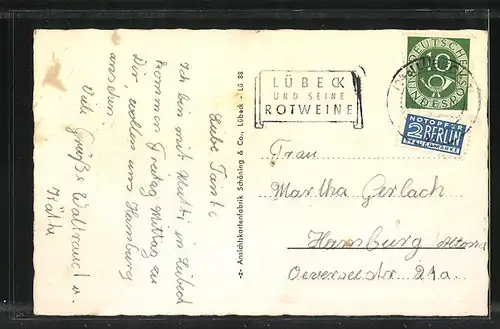 Liebe Tante
Ich bin mit Mutti in Lübeck
kommen Freitag Mittag zu
Dir, wollen uns Hamburg
ansehen.
Viele Grüße Waltraud u.
Käthe
-z- Ansichtskartenfabrik Schöning & Co., Lübeck - Lü 83
LÜBECK
UND SEINE
ROTWEINE
DEUTSCHE
10
BUNDESPOST
NOTOPFER
2 BERLIN
STEUERMARKE
Frau
Martha Gerlach
Hamburg Altona
Oeverseestr 21a.